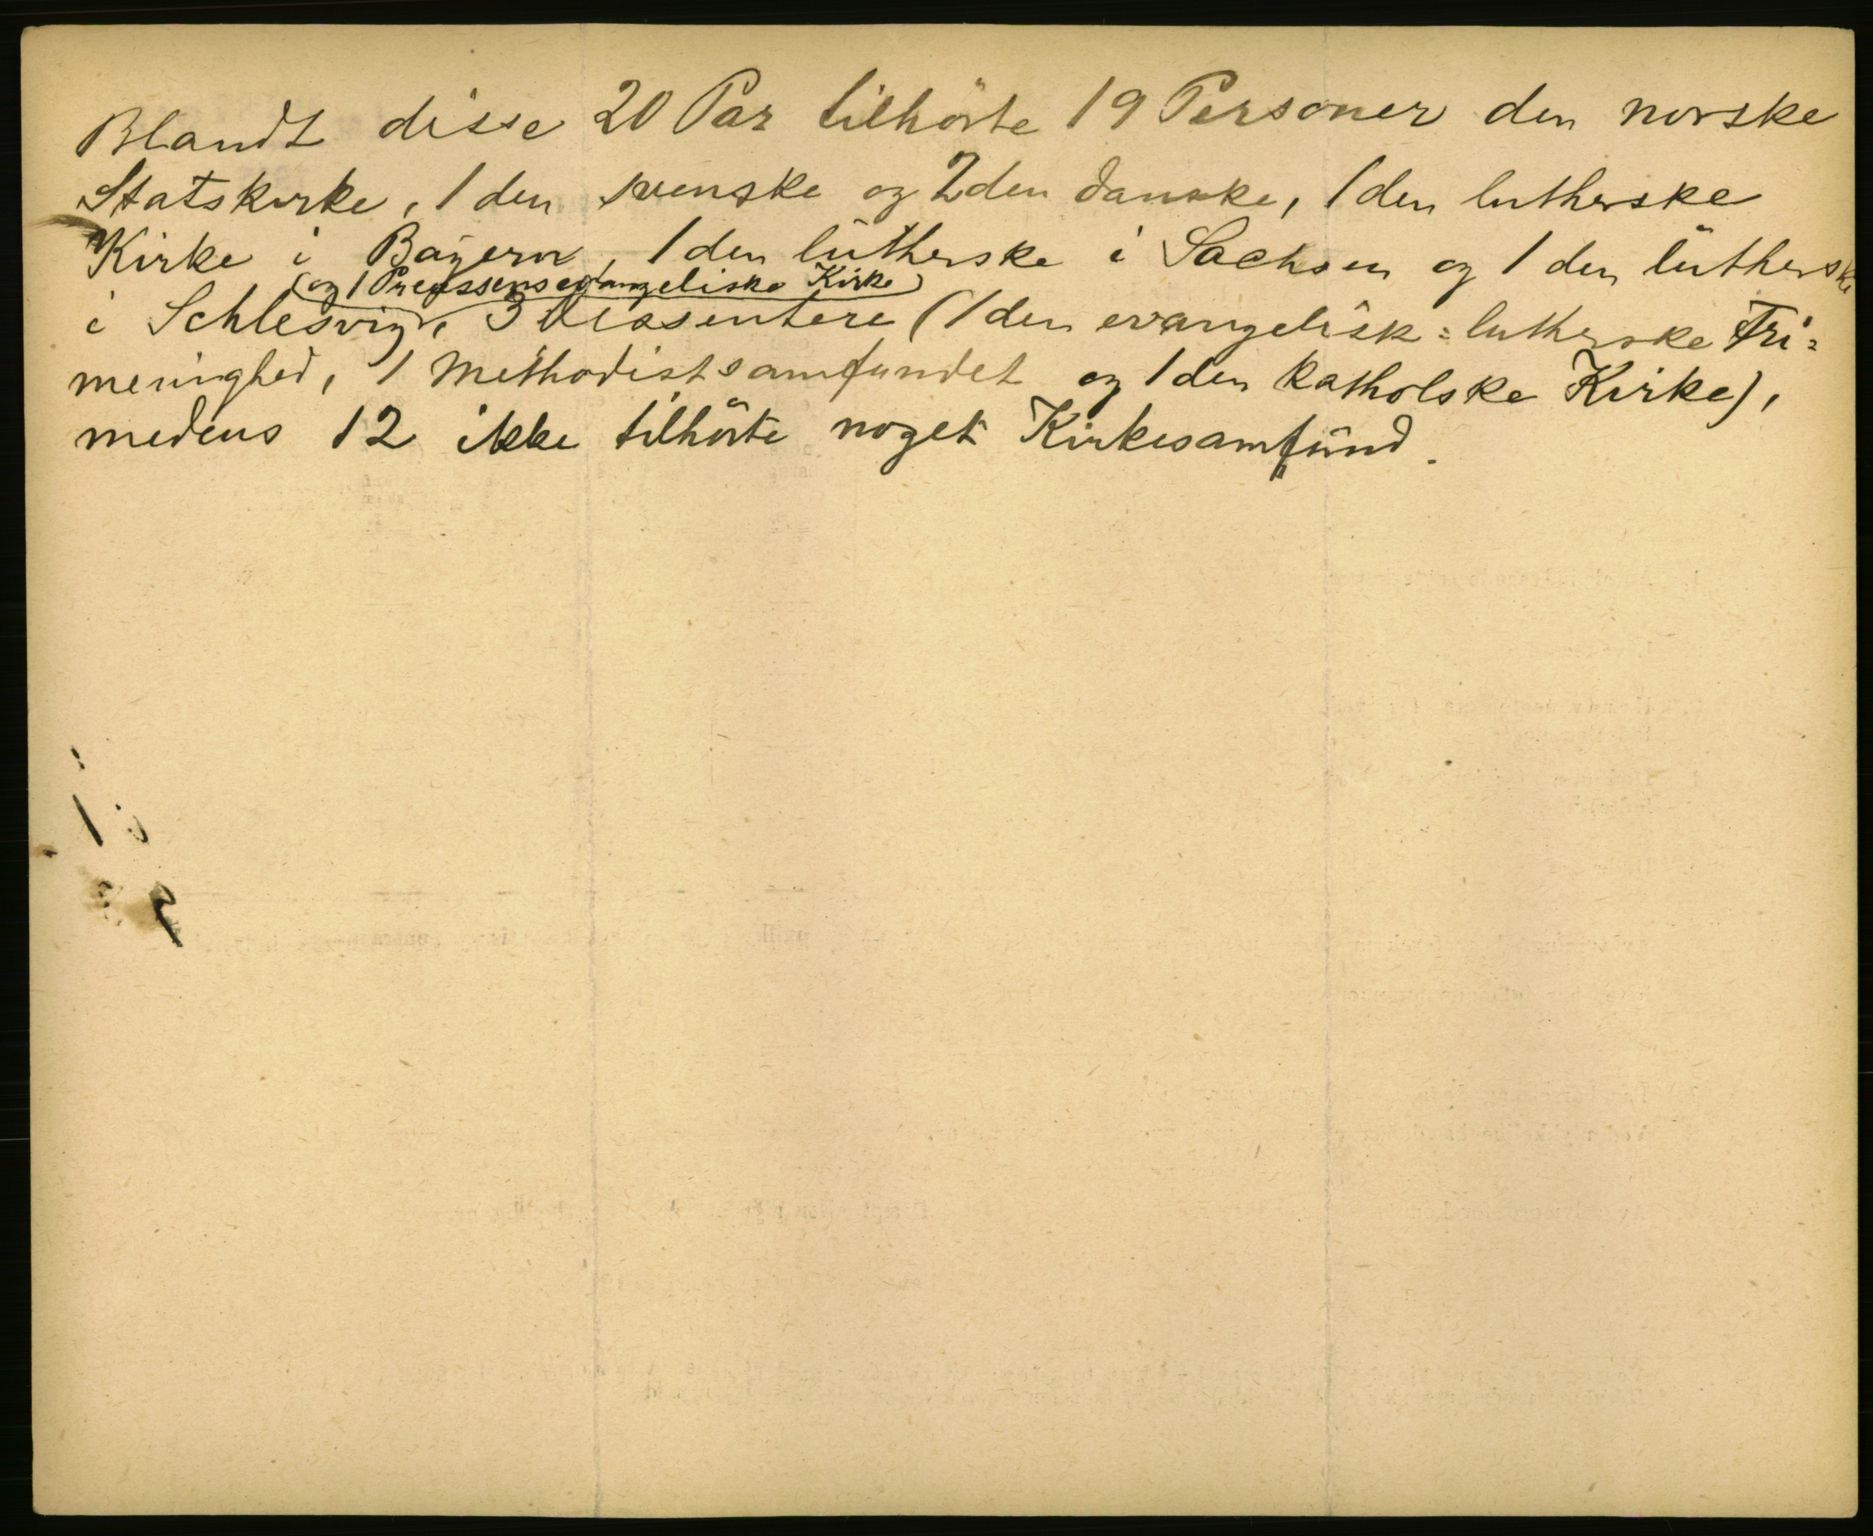 Blandt disse 20 Par tilhörte 19 Personer den norske
Statskirke, 1 den svenske og 2 den danske, 1 den lutherske
Kirke i Bayern, 1 den lutherske i Sachsen og 1 den lutherske
(og 1 Preussens evangeliske Kirke)
i Schlesvig, 3 Dissentere (1 den evangelisk=lutherske Fri=
menighed, 1 Methodistsamfundet og 1 den katholske Kirke),
medens 12 ikke tilhörte noget Kirkesamfund.